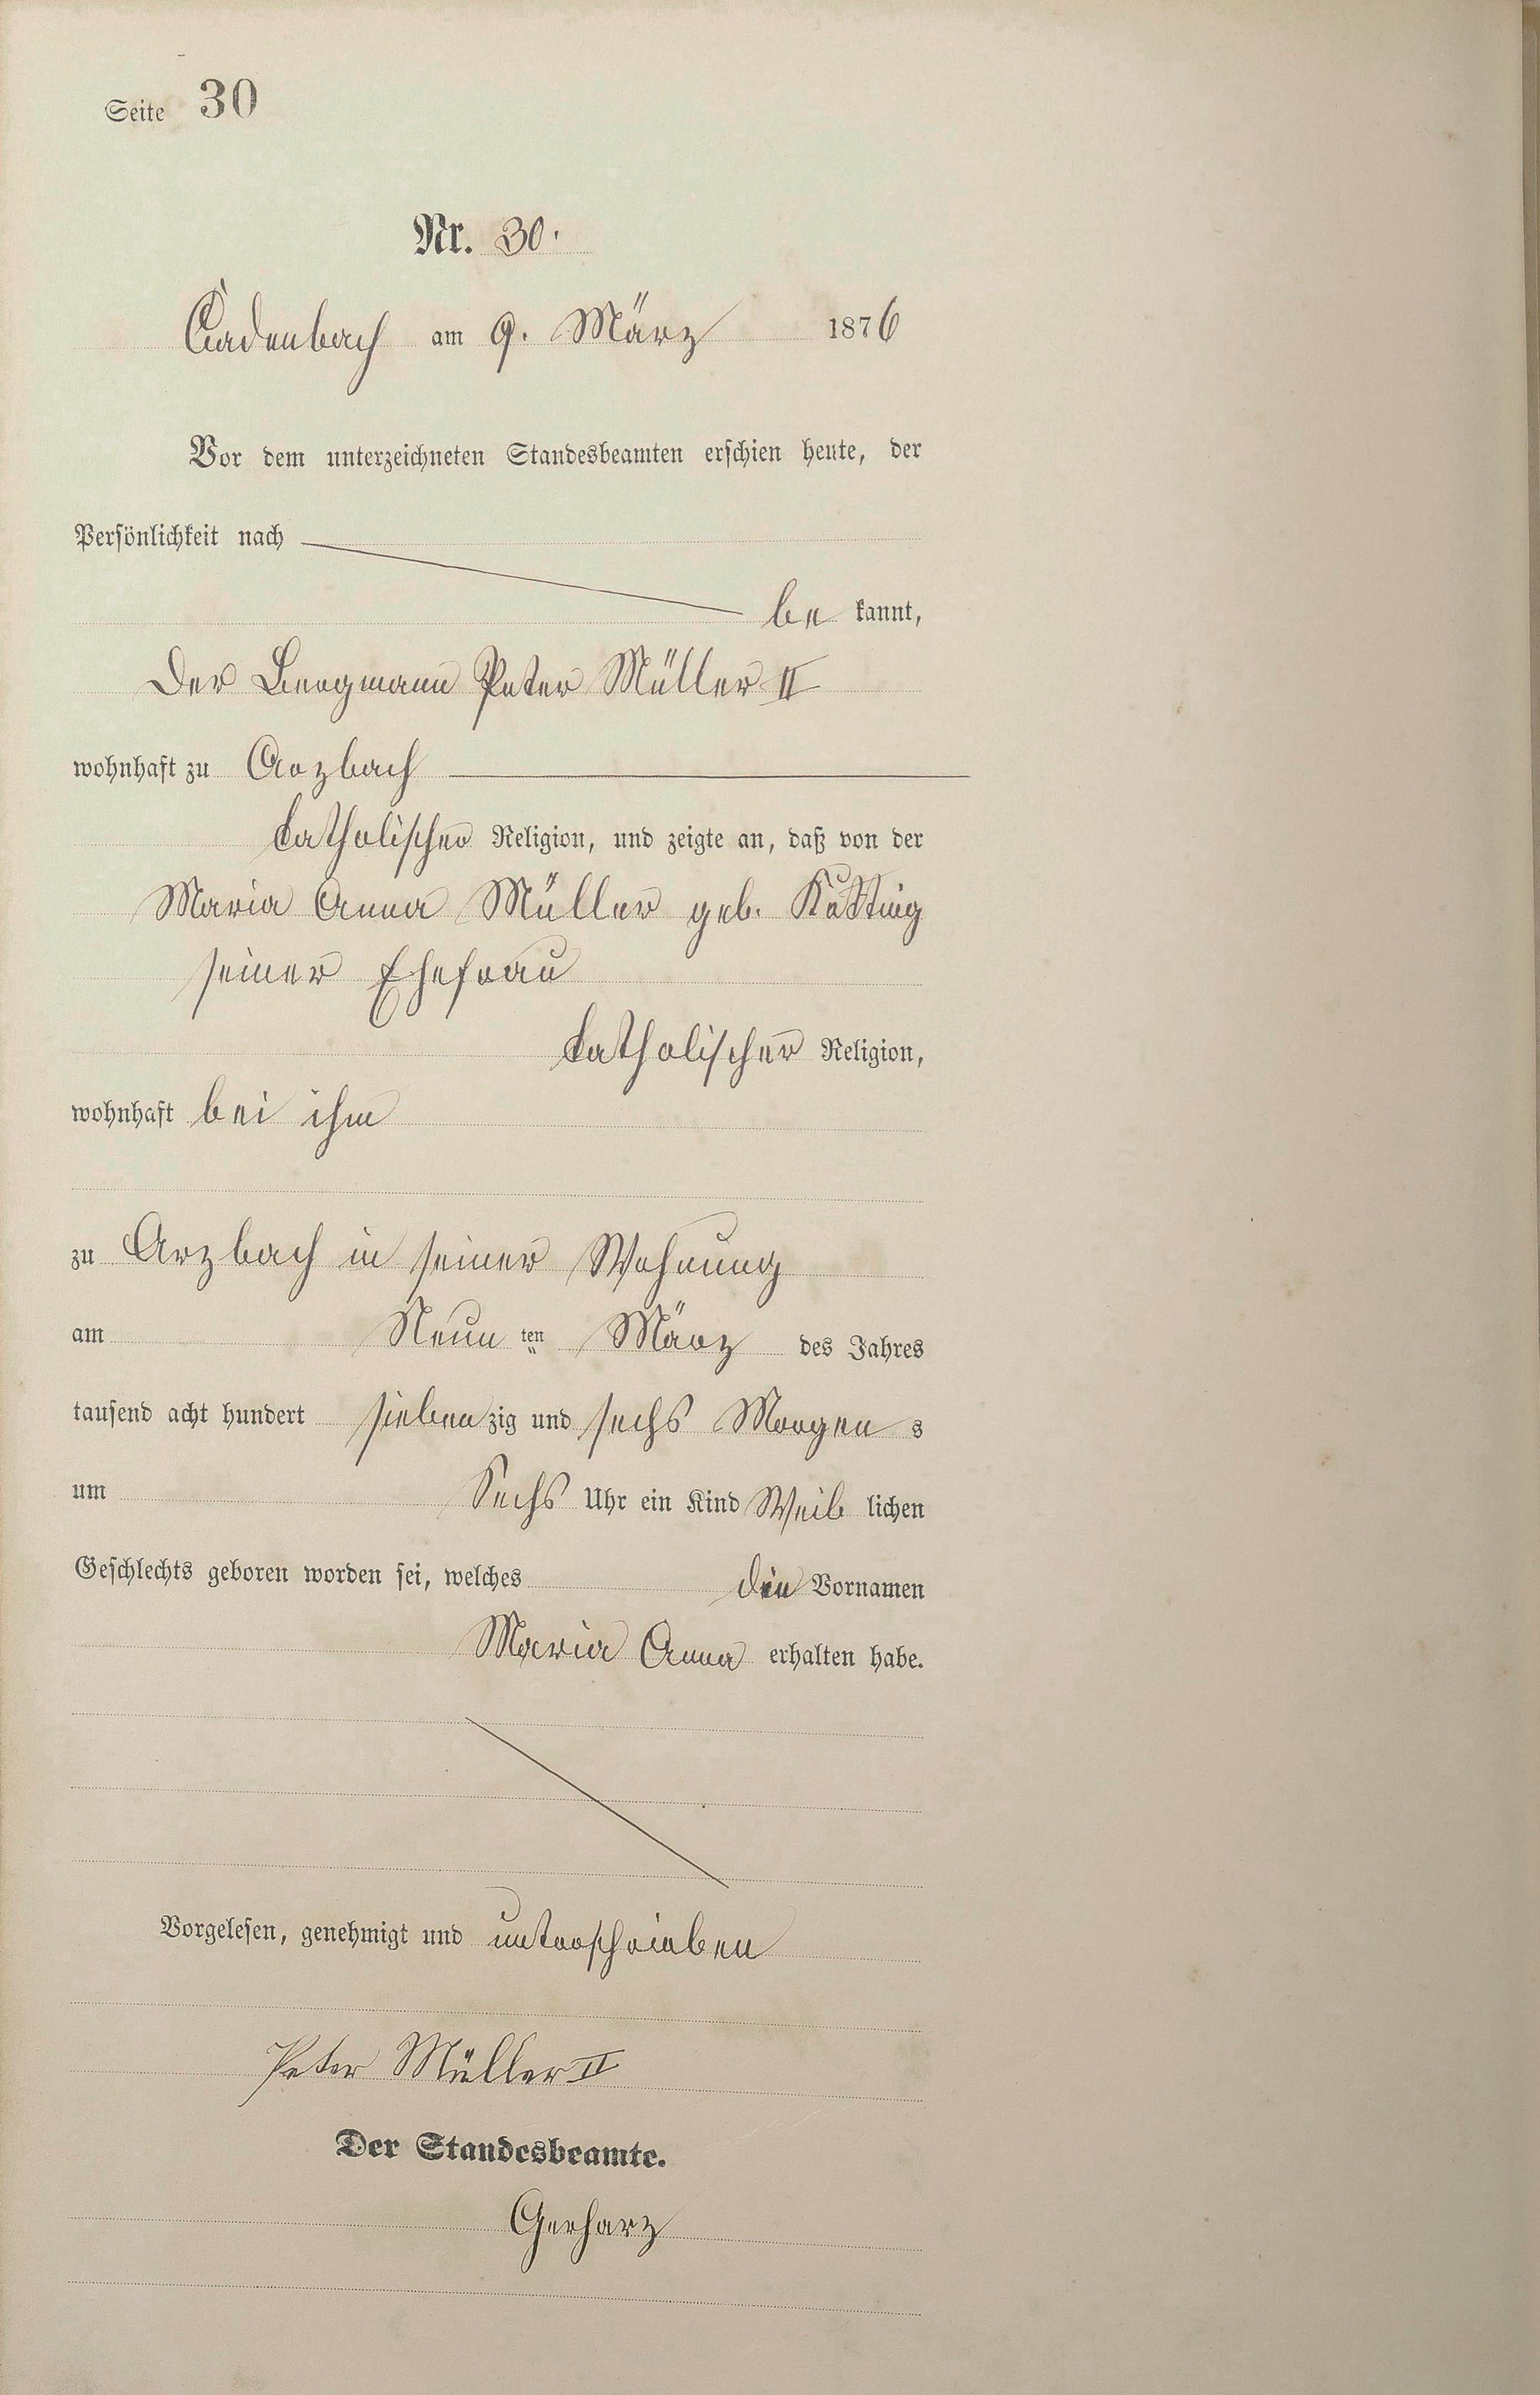 Seite 30
Nr. 30.
Cadenbach am 9. März 1876
Vor dem unterzeichneten Standesbeamten erschien heute, der
Persönlichkeit nach
be kannt,
Der Bergmann Peter Müller II
wohnhaft zu Arzbach
katholischer Religion, und zeigte an, daß von der
Maria Anna Müller geb.
seiner Ehefrau
katholischer Religion,
wohnhaft bei ihm
zu Arzbach in seiner Wohnung
am Neun ten März des Jahres
tausend acht hundert sieben zig und sechs Morgen s
um Sechs Uhr ein Kind Weib lichen
Geschlechts geboren worden sei, welches die Vornamen
Maria Anna erhalten habe.
Vorgelesen, genehmigt und unterschrieben
Peter Müller II
Der Standesbeamte.
Gerharz